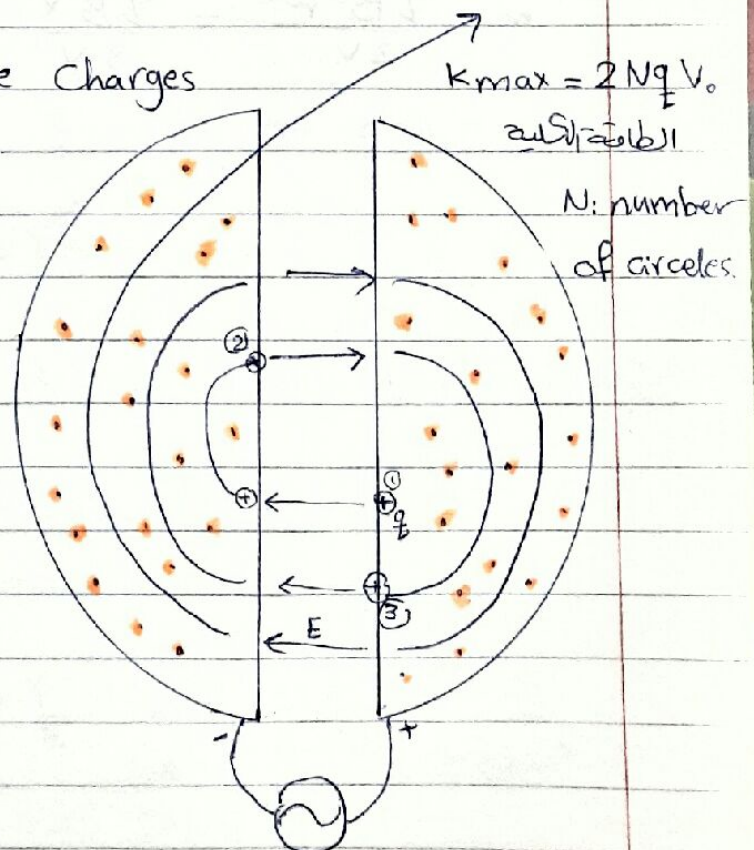 e Charges
Kmax = 2 Nq V₀
الطاقة الحركية
N: number
of circeles.
2
1
+
+
q
+
3
E
-
+